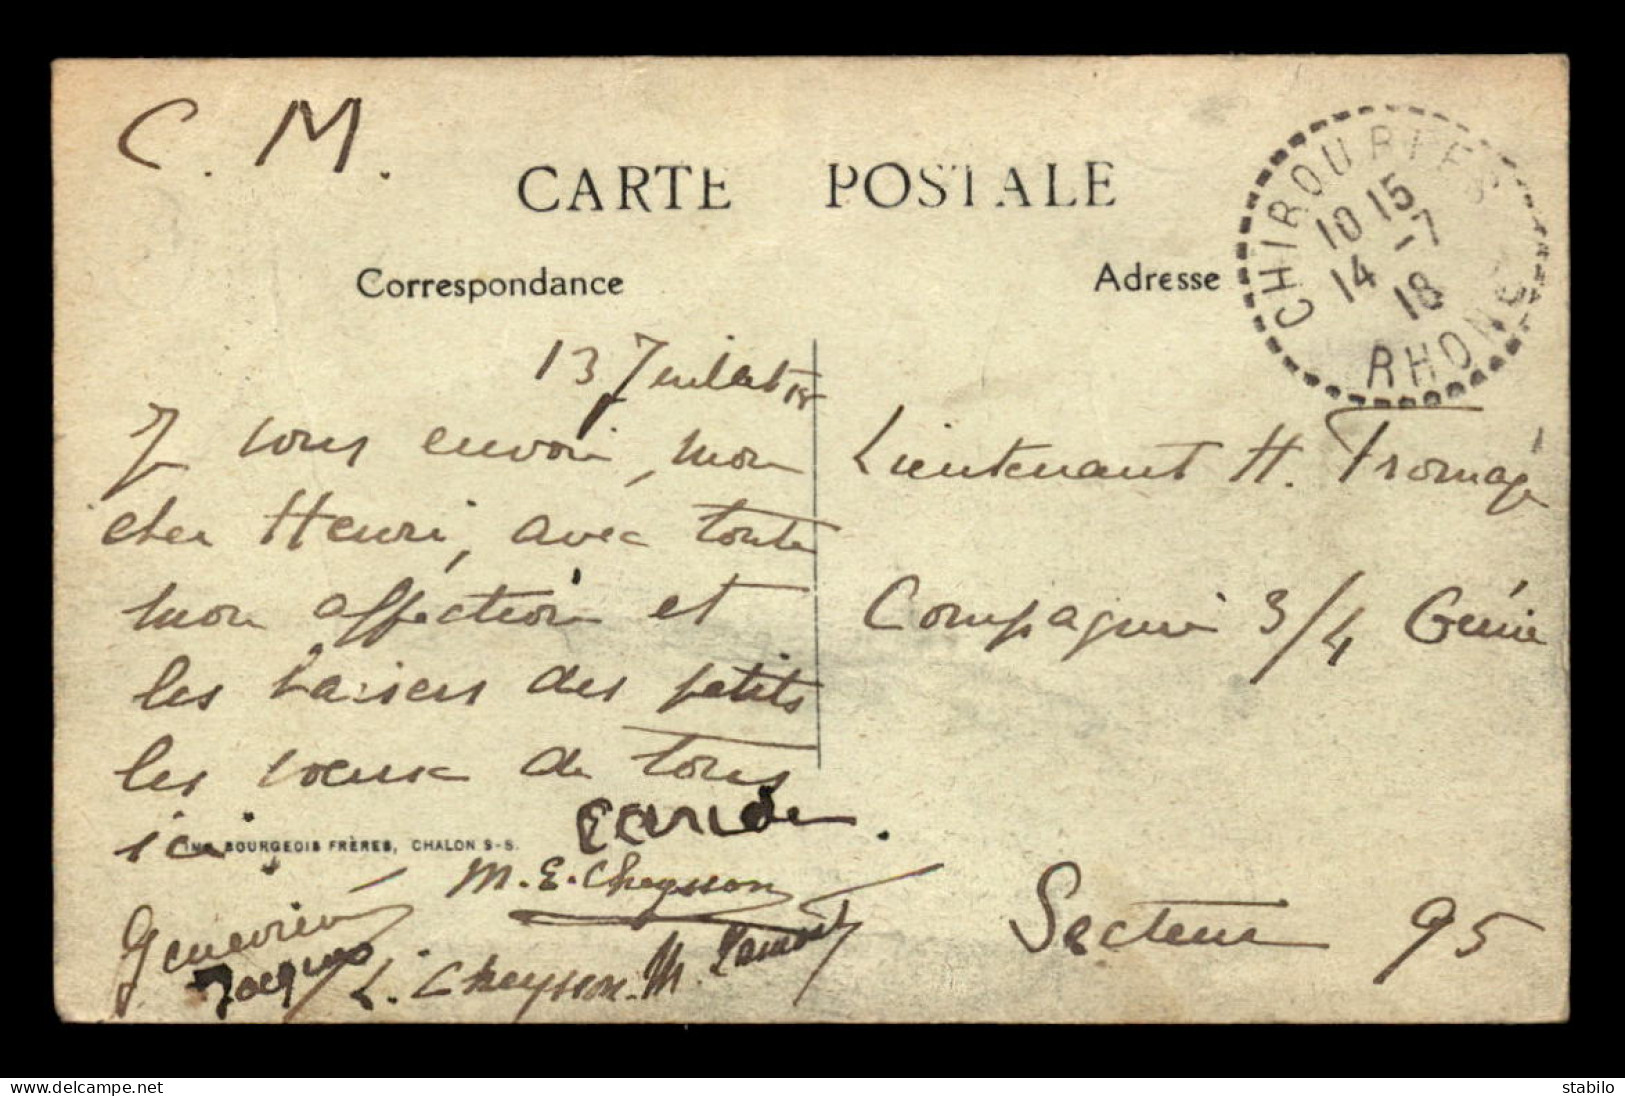 C. M.
CARTE POSTALE
Correspondance
Adresse
CHIROUBLES
10 15
14 -7
18
RHONE
13 Juillet 18
J vous envoie, mon
cher Henri, avec toute
mon affection et
les baisers des petits
les voeux de tous
ici
IMP. BOURGEOIS FRÈRES, CHALON S-S.
M. E. Cheysson
Geneviève
Jacques L. Cheysson M.
Lieutenant H. Fromage
Compagnie 3/4 Génie
Secteur 95
stabilo
delcampe.net